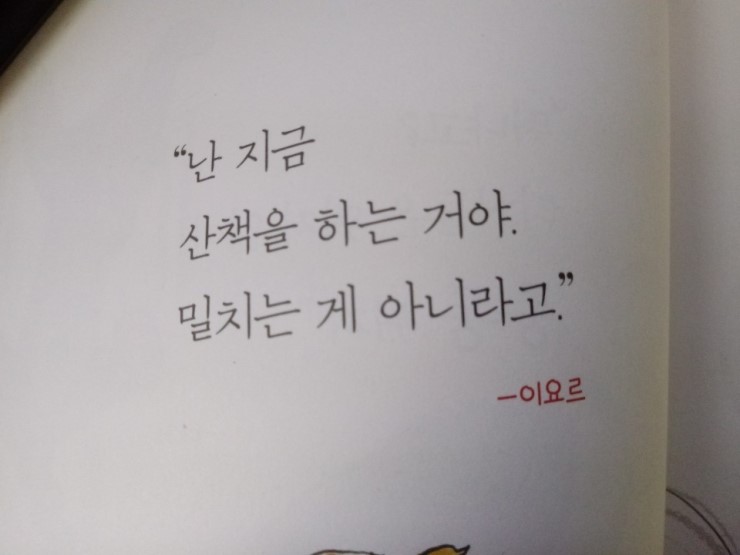 “난 지금
산책을 하는 거야.
밀치는 게 아니라고.”
–이요르